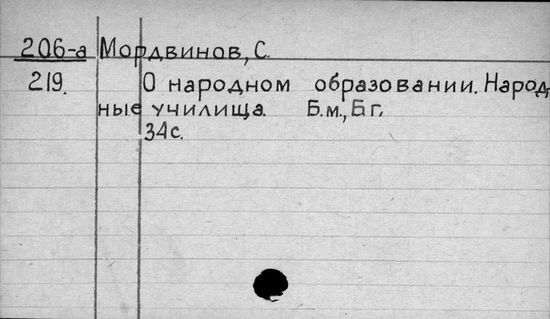 206-а Мордвинов, С.
219. О народном образовании. Народ
ные училища. Б.м., Б г.
34с.